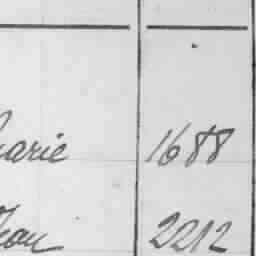 Marie 1688
Jean 2212